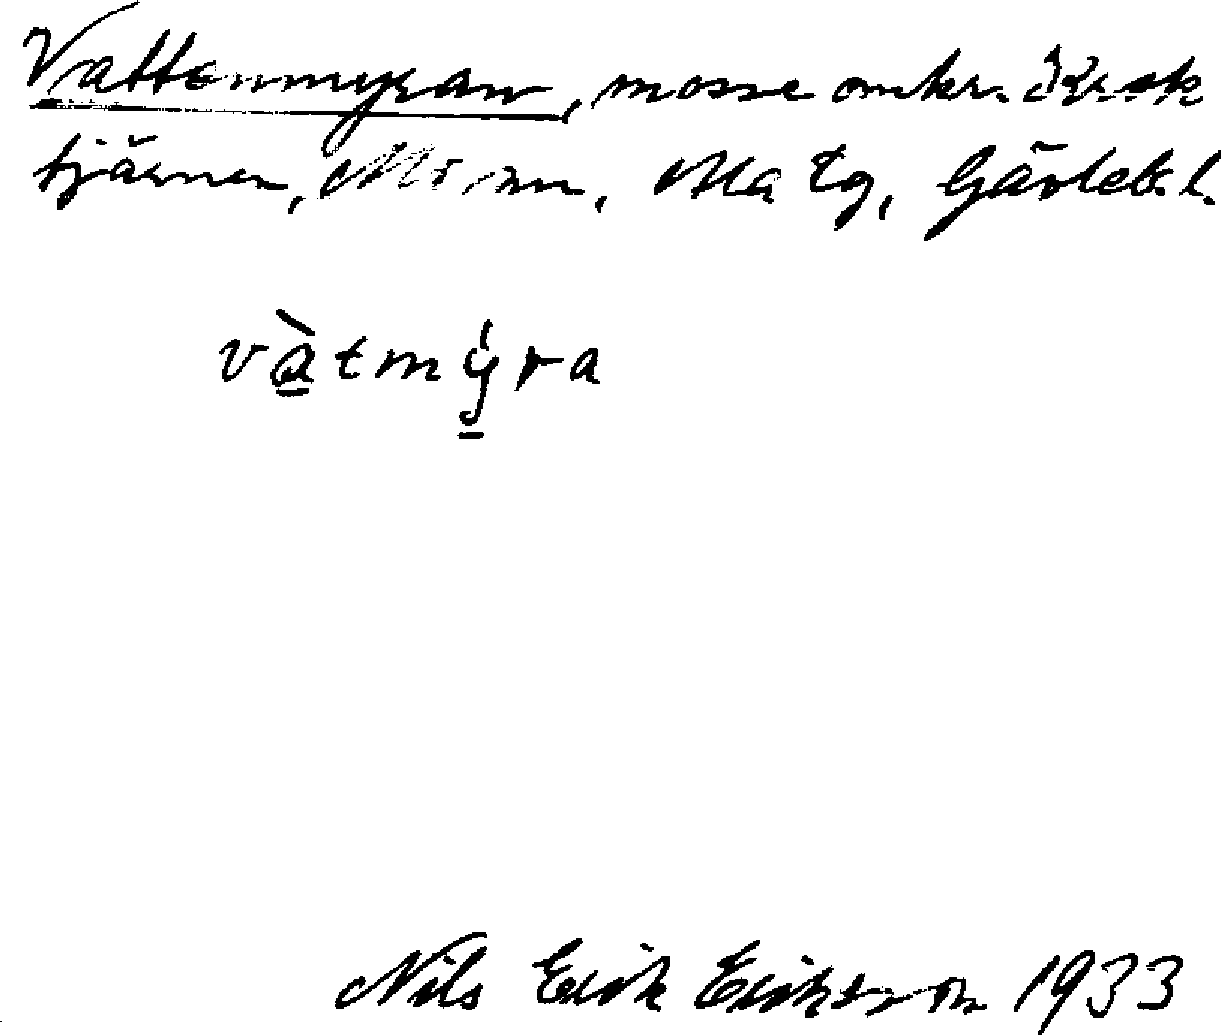 Vattenmyran, mosse omkr.
tjärnen, Mo sn, Ala tg, Gävleb. l.
vàtmýra
Nils Erik Eriksson 1933